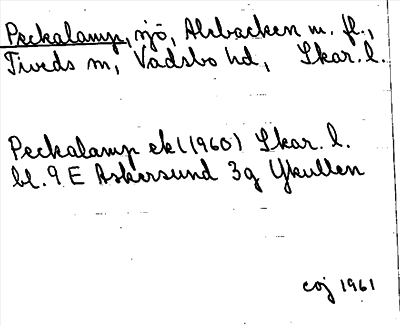 Peckalamp, sjö, Alsbacken m. fl.,
Tiveds sn, Vadsbo hd, Skar. l.
Peckalamp ek (1960) Skar. l.
bl. 9 E Askersund 3g Ykullen
coj 1961